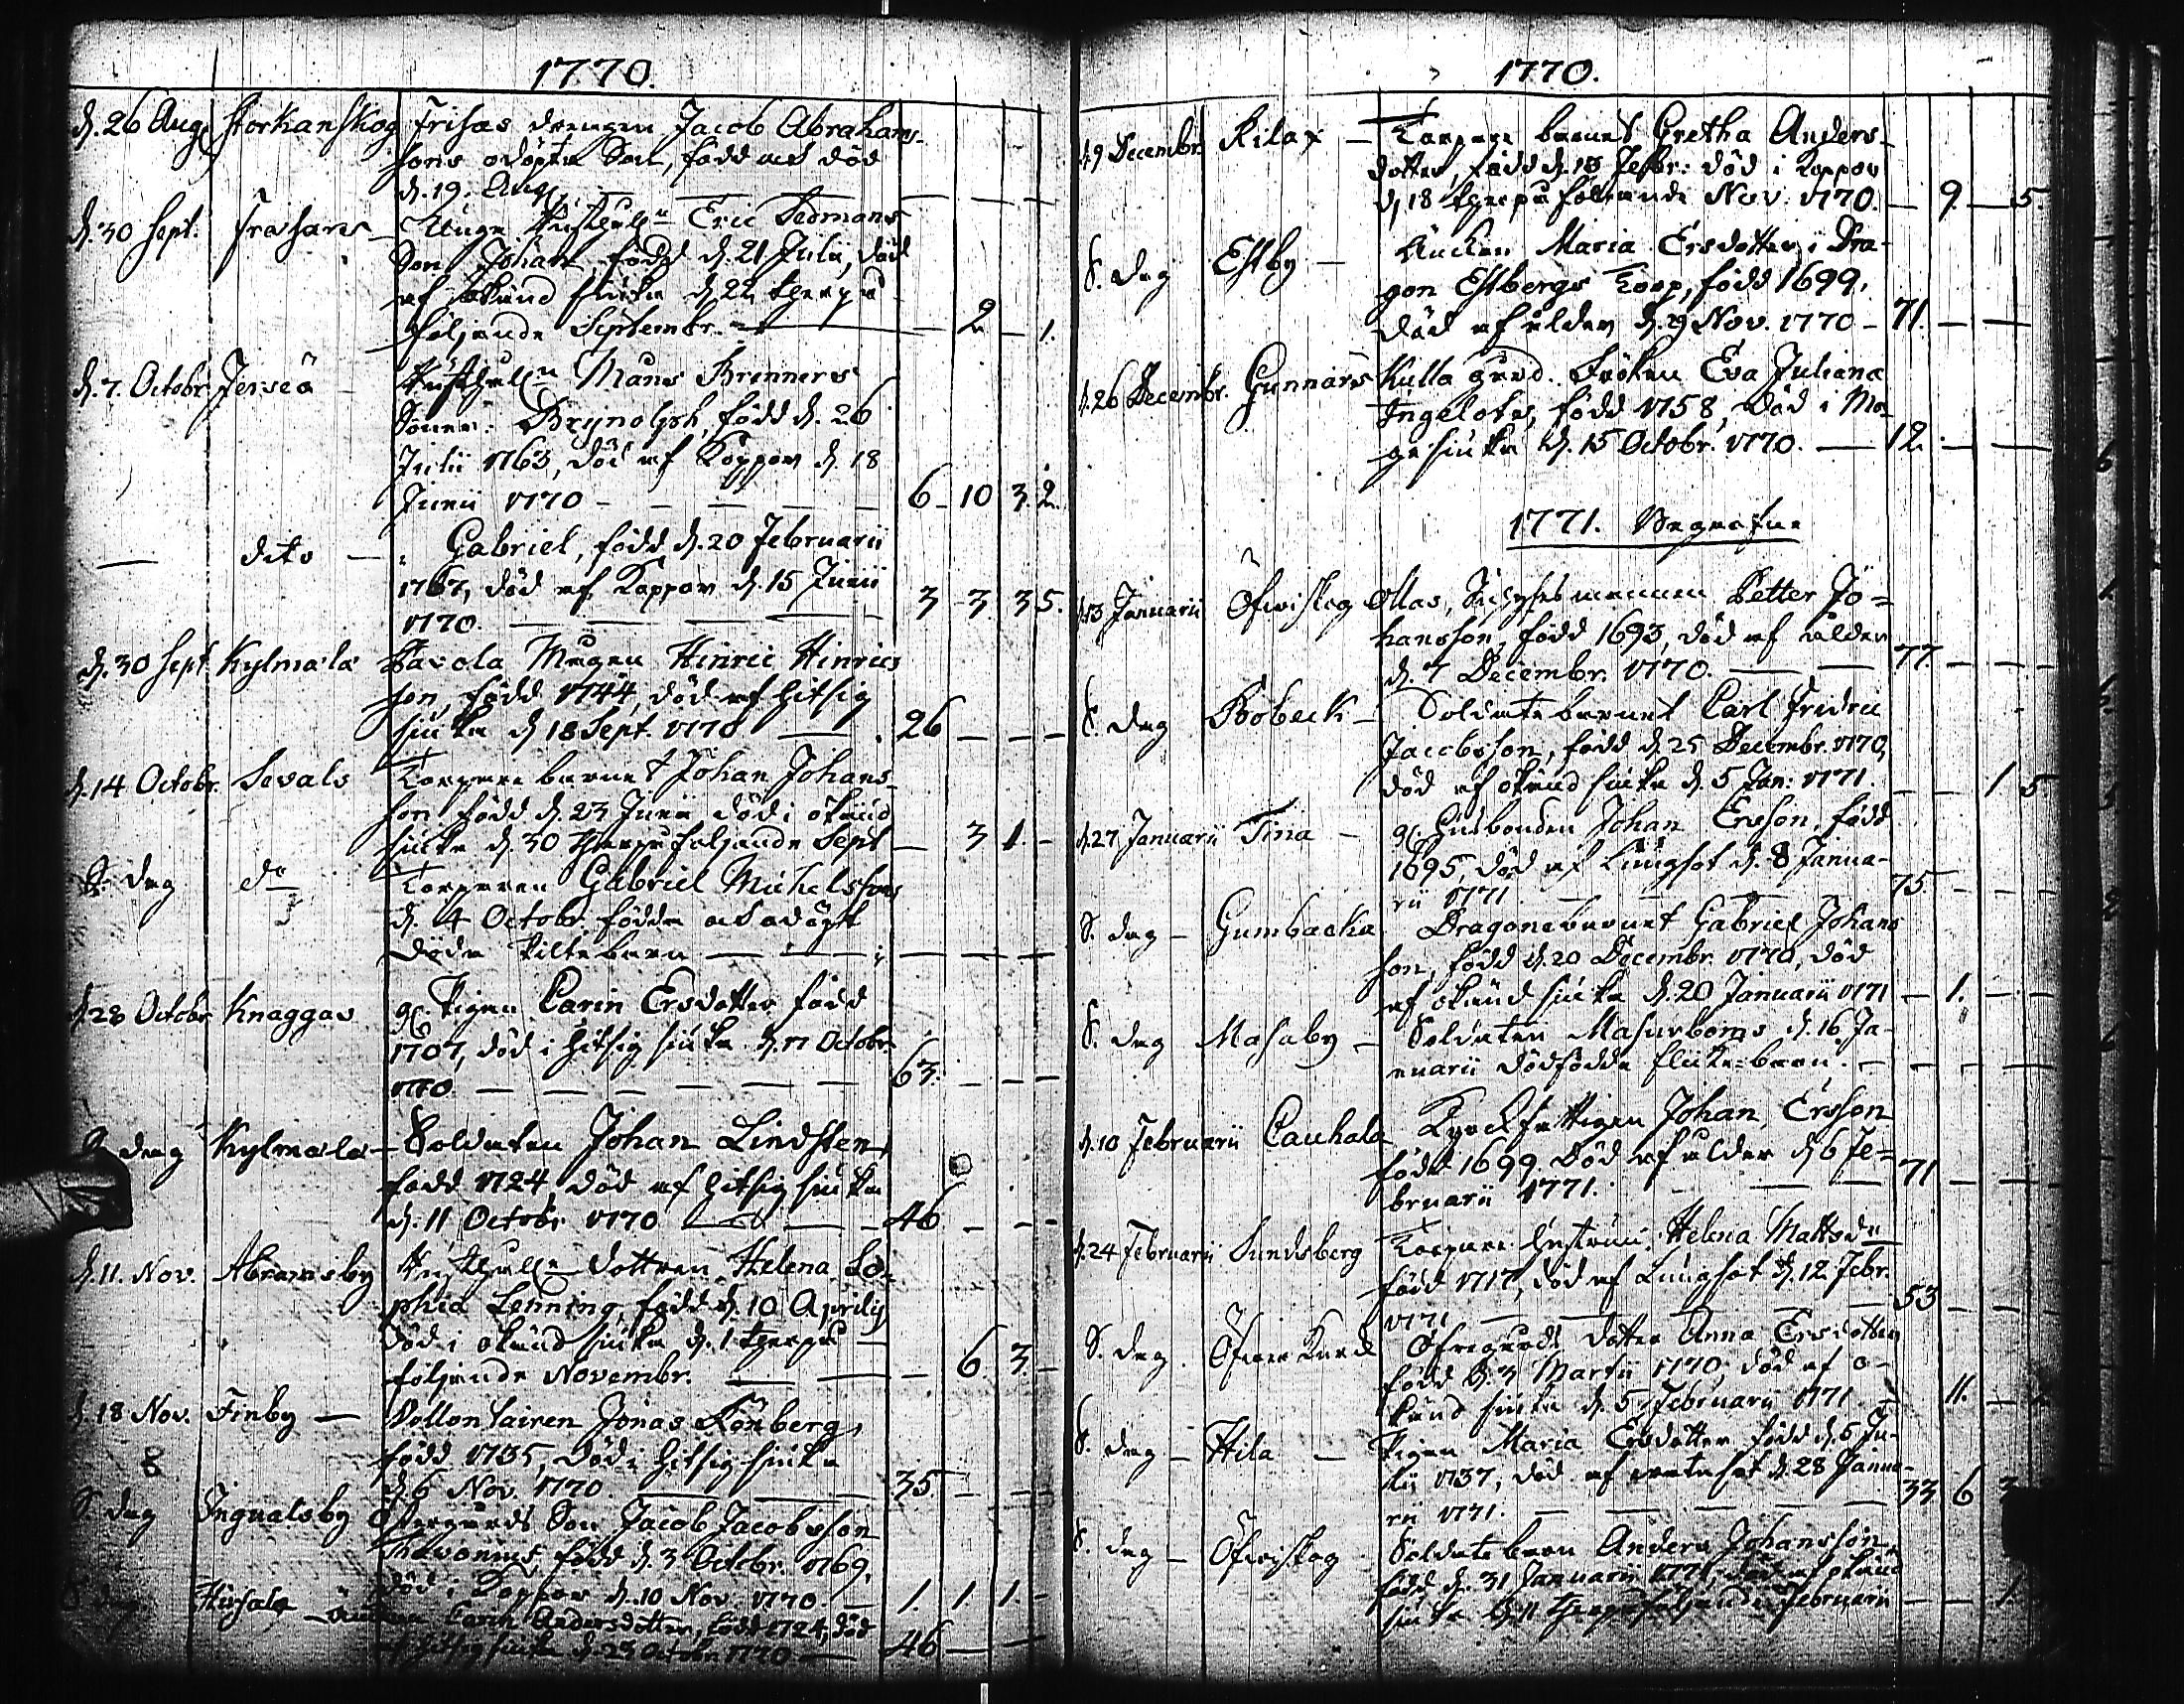 1770.
d. 26 Aug. Storkanskog Frisas drengen Jacob Abrahams-
sons odöpta Son, född och död
d. 19. Aug.
d. 30 Sept. Frahans - Unga Eric Sedmans
Son Johan född d. 21 Julii, död
af okänd siuka d. 22 therpå
följande Septembr. - 2 - 1.
d. 7. Octobr. Jerseä - Måns Brenners
Söner: Brynolph, född d. 26
Julii 1763, död af Koppor d. 18
Junii 1770 - - - - - 6 - 10 3. 2.
- dito - Gabriel, född d. 20 Februarii
1767, död af Koppor d. 15 Junii
1770. - - - 3 - 3. 3 5.
d. 30 Sept. Kylmäla Pavola Mågen Hinric Hinrics
son, född 1744, död af hitsig
siuka d. 18 Sept. 1770 - 26 - - -
d. 14 Octobr. Sevals Torpare barnet Johan Johans
son född d. 23 Junii död i okänd
siuka d. 30 therpå följande Sept - 3 1. -
S. dag do Torparen Gabriel Michelssons
d. 4 Octobr. födde och odöpt
döde Piltebarn - - - - - -
d. 28 Octobr Knaggas gl. Pigan Carin Ersdotter född
1707, död i hitsig siuka d. 17 Octobr.
1770. - - - - - 63. - - -
S. dag Kylmäla - Soldaten Johan Lindsten
född 1724 död af hitsig siuka
d. 11 Octobr. 1770 - - - 46 - - -
d. 11. Nov. Abramsby dottren Helena So-
phia Lenning, född d. 10 Aprilis
död i okänd siuka d. 1 therpå
följande Novembr. - - - 6. 3. -
d. 18 Nov. Finby - Vollontairen Jonas Rönberg
född 1735, död i hitsig siuka
d. 6 Nov. 1770. - - - 35 - - -
8
S. dag Ingvalsby Östergårds Son Jacob Jacobsson
född d. 3 Octobr. 1769.
död i Koppor d. 10 Nov. 1770. - 1. 1 1. -
S. dag Hirsala - Änkan Carin Andersdotter, född 1724, död
af hitsig siuka d. 23 Octobr. 1770. - 46 - -
1770.
d. 9 Decembr. Kilax - Torpare barnet Gretha Anders-
dotter, född d. 13 Febr. död i Koppor
d. 18 therpå följande Nov. 1770. - 9. - 5.
S. dag Estby - Änckan Maria Ersdotter i Dra-
gon Estbergs Torp, född 1699.
död af ålder d. 29 Nov. 1770 - 71. - -
d. 26 Decembr. Gunnars Kulla gård. Fröken Eva Juliana
Ingelotz, född 1758, död i Ma-
gesiuka d. 15 Octobr. 1770. - 12. - -
1771. Begrafne
d. 13 Januarii Öfwiskog Ollas, Petter Jo=
hansson, född 1693, död af ålder
d. 7 Decembr. 1770. - - 77 - - -
S. dag Bobeck - Soldate barnet Carl Fridric
Jacobsson, född d. 25 Decembr. 1770,
död af okänd siuka d. 5 Jan: 1771. - - 1 5
d. 27 Januarii Tina - gl. Gudbonden Johan Ersson, född
1695, död af Lungsot d. 8 Janua-
rii 1771 - - - 75 - - -
S. dag - Gumbacka Dragonebarnet Gabriel Johans
son, född d. 20 Decembr. 1770, död
af okänd siuka d. 20 Januarii 1771 - 1. - -
S. dag Masaby - Soldaten Masurboms d. 16 Ja-
nuarii dödfödde flicke=barn. - - - -
d. 10 Februarii Cauhala Kyrckfattigen Johan Ersson
född 1699. död af ålder d. 6 Fe=
bruarii 1771. - - 71 - - -
d. 24 Februarii Sundsberg Torpare hustrun Helena Mattsdr
född 1717, död af Lungsot d. 12 Febr.
1771 - - - 53 - - -
S. dag. Öfwer Kurck Öfregårds dotter Anna Ersdotter
född d. 3 Martii 1770, död af o-
känd siuka d. 5 Februarii 1771 - 11. - 2
S. dag - Hila - Pigan Maria Ersdotter född d. 5 Ju-
lii 1737, död af d. 28 Janua-
rii 1771. - - - - 33 6 3
S. dag - Öfwiskog Soldate barn Anders Johansson
född d. 31 Januarii 1771, död af okänd
siuka d. 11 therpå följande Februarii - - 1.